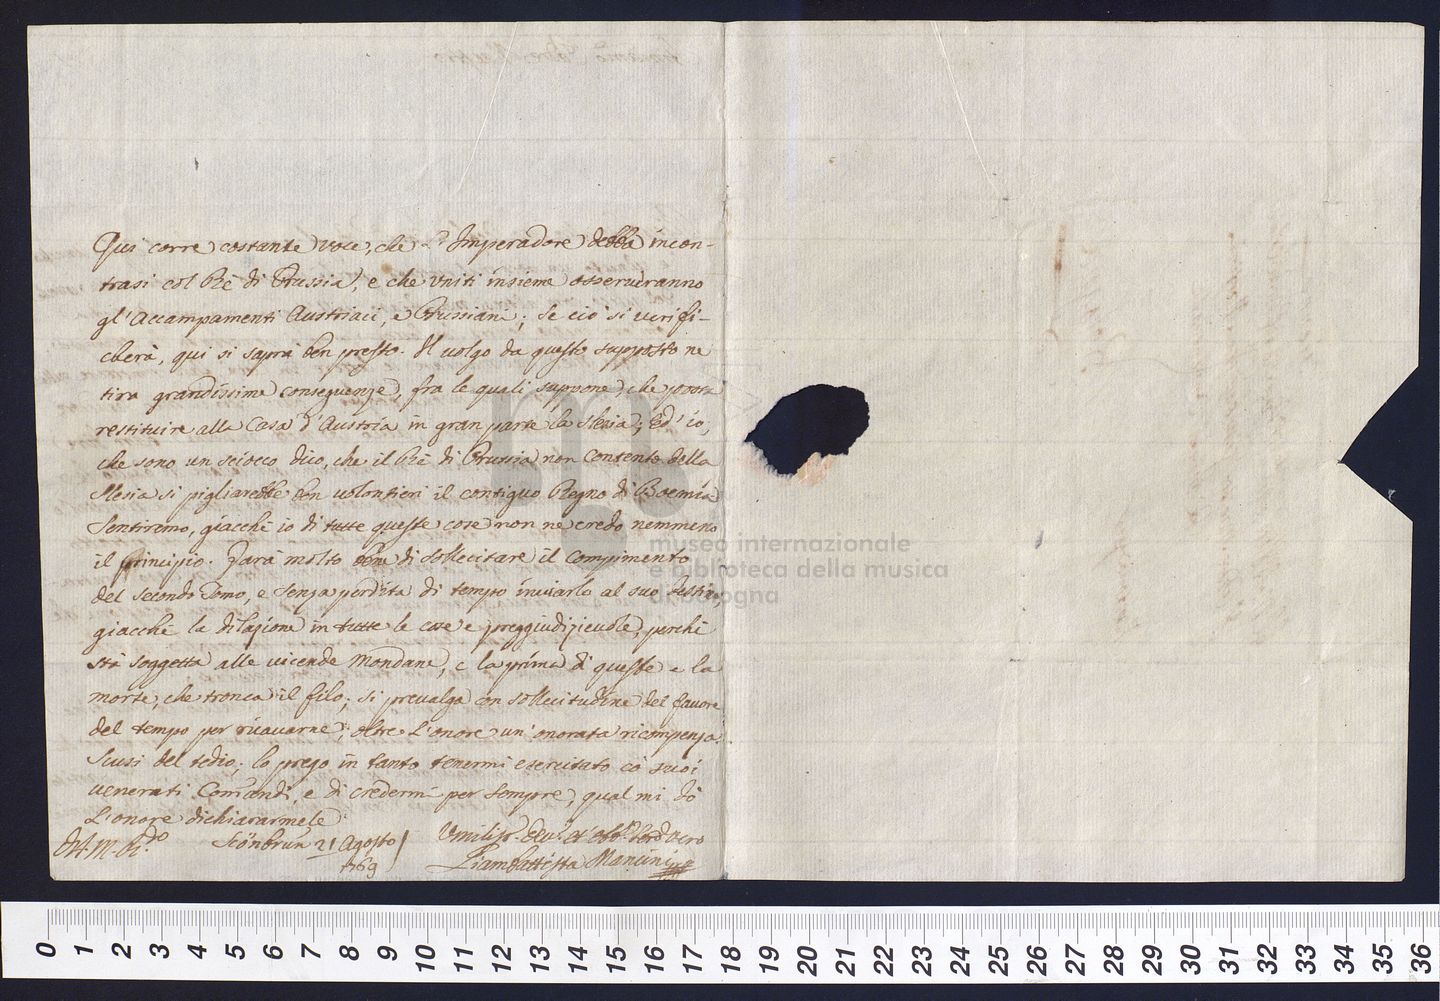 Qui corre costante voce, che L'Imperadore debba incon-
trasi col Rè di Prussia, e che uniti insieme osserveranno
gl'Accampamenti Austriaci, e Prussiani; se ciò si verifi-
cherà, qui si saprà ben presto. Il volgo da questo supposto ne
tira grandissime conseguenze, fra le quali suppone, che possa
restituire alla Casa d'Austria in gran parte la Slesia; Ed' io,
che sono un sciocco dico, che il Rè di Prussia non contento della
Slesia si pigliarebbe ben volontieri il contiguo Regno di Boemia
Sentiremo, giacchè io di tutte queste cose non ne credo nemmeno
il principio. Farà molto bene di sollecitare il compimento
del secondo Tomo, e senza perdita di tempo inviarlo al suo destin,
giacchè la dilazione in tutte le cose e preggiudizievole, perchè
stà soggetta alle vicende Mondane, e la prima di queste e la
morte, che tronca il filo; si prevalga con sollecitudine del favore
del tempo per ricavarne, oltre L'onore un' onorata ricompensa.
Scusi del tedio; lo prego in tanto tenermi esercitato cò suoi
venerati Comandi, e di credermi per sempre, qual mi dò
L'onore dichiararmele
Scönbrun 21 Agosto
1769
Umiliss. Dev. et obb. Serv. vero
Giambattista Mancini
museo internazionale
e biblioteca della musica
di bologna
0 1 2 3 4 5 6 7 8 9 10 11 12 13 14 15 16 17 18 19 20 21 22 23 24 25 26 27 28 29 30 31 32 33 34 35 36